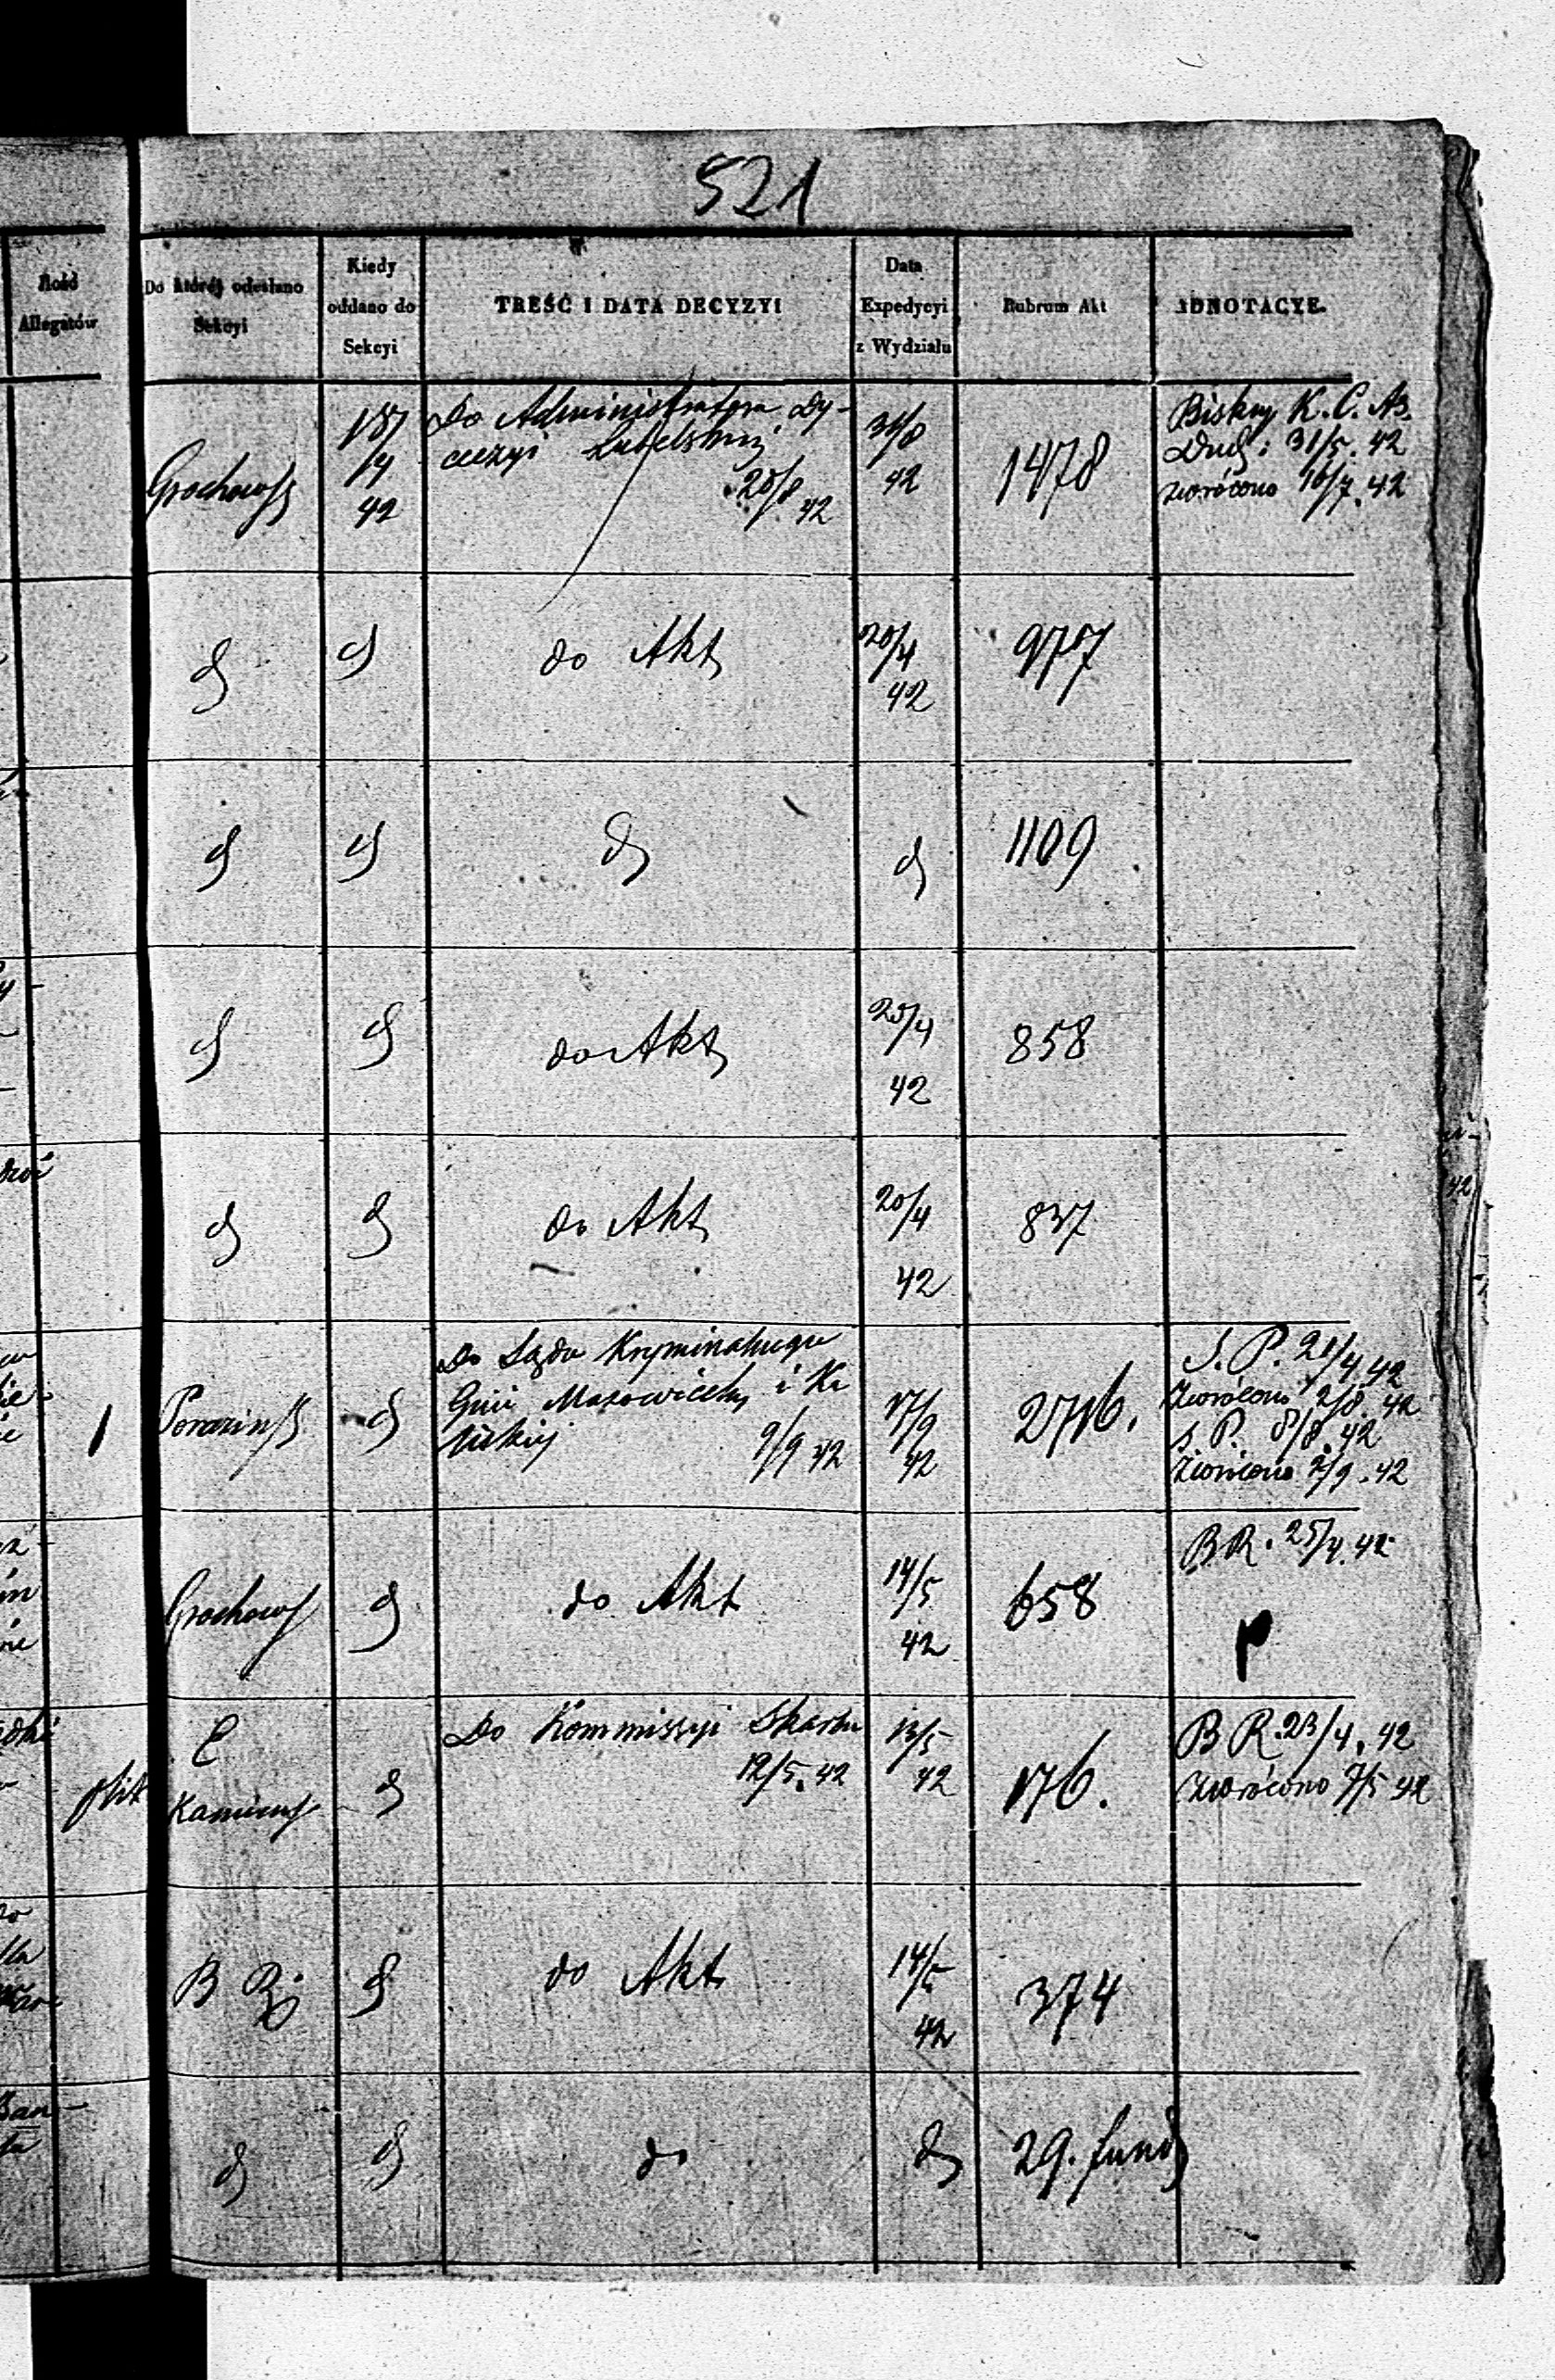 521
Ilość
Allegatów
Do której odesłano
Sekcyi
Kiedy
oddano do
Sekcyi
TREŚĆ I DATA DECYZYI
Data
Expedycyi
z Wydziału
Rubrum Akt
ADNOTACYE.
Grochows
42
Do Administratora Dy-
ecezyi Lubelskiej
20/8 42
31/8
42
1478
31/5. 42
zwrócono 16/7. 42
d
d
do Akt
20/4
42
977
d
d
d
d
1109
d
d
do Akt
20/4
42
858
d
d
do Akt
20/4
42
837
1
d
Do Sądu Kryminalnego
Gnii Mazowieckiej i Ka
liskiej
9/9 42
17/9
42
2716.
S. P. 21/4 42
Zwrócono 2/8. 42
S. P. 8/8. 42
Zwrócono 2/9. 42
Grochows
d
do Akt
14/5
42
658
B R. 25/4. 42
plik
Kamiens
d
Do Kommissyi Skarbu
12/5. 42
13/5
42
176.
B R. 23/4. 42
Zwrócono 7/5 42
B R.
d
do Akt
14/5
42
374
d
d
do
d
29. fund